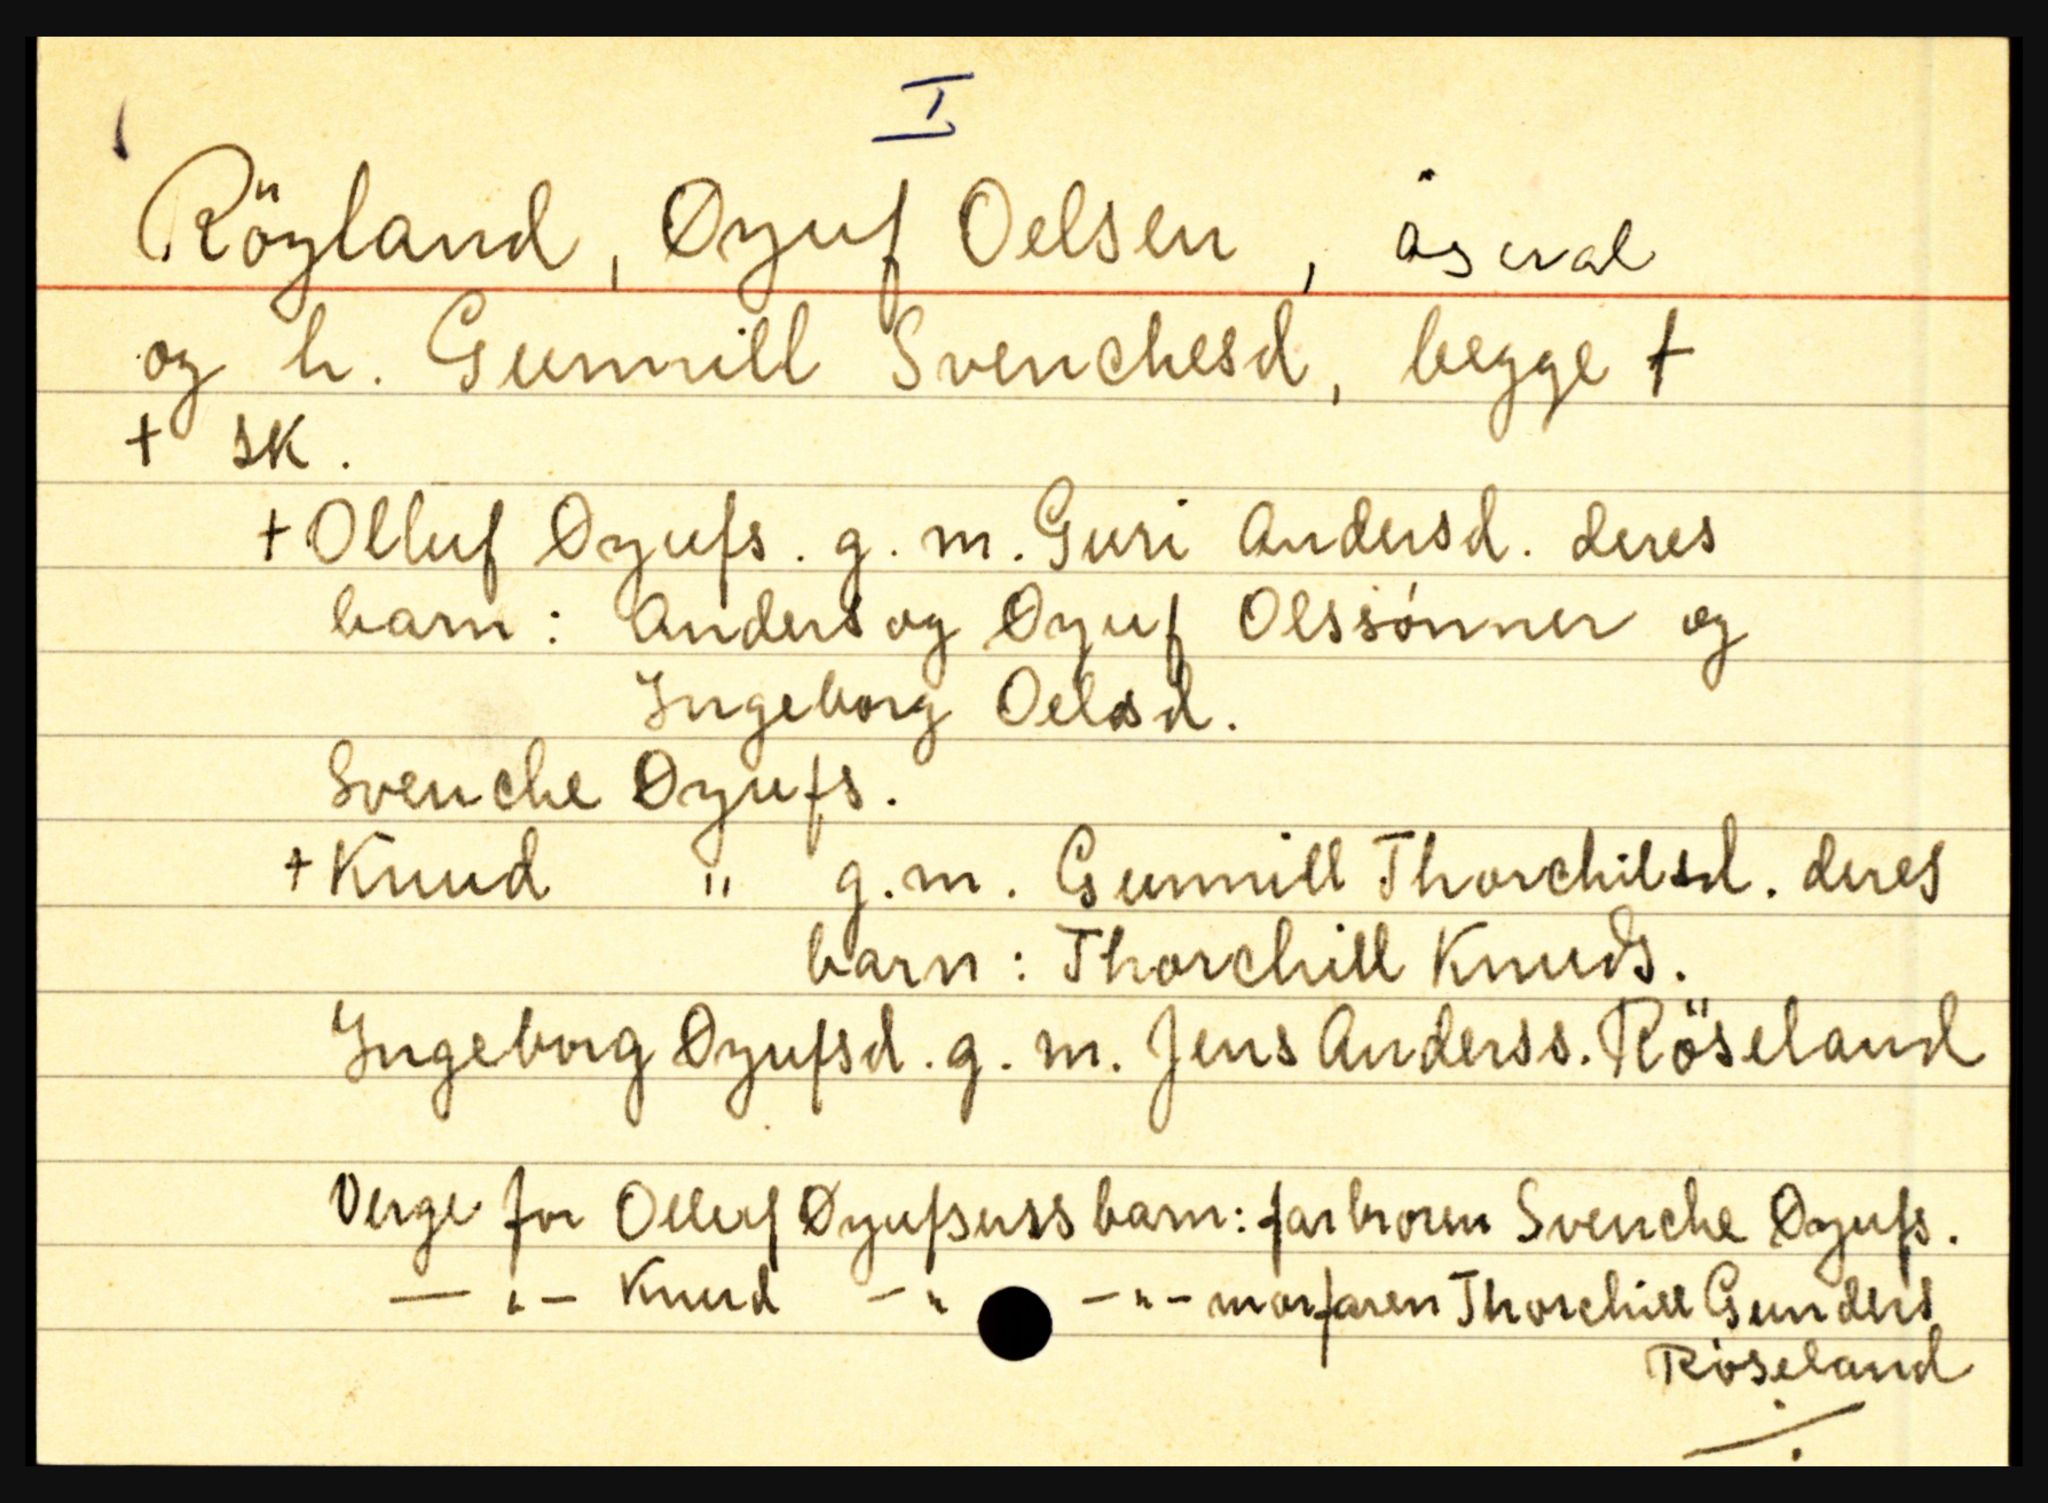 I
Röyland, Øyuf Oelsen, Åseral
og h. Gunnill Svenchesd, begge †
+ sk.
+ Olluf Øyufs. g. m. Guri Andersd. deres
barn: Anders og Øyuf Olssönner og
Ingeborg Oelsd.
Svenche Øyufs.
+ Knud " g. m. Gunnill Thorchilsd. deres
barn: Thorchill Knuds.
Ingeborg Øyufsd. g. m. Jens Anderss. Röseland
Verge for Olluf Øyufsens barn: farbroren Svenche Øyufs.
— " — Knud — " — " — morfaren Thorchill Gunders
Röseland